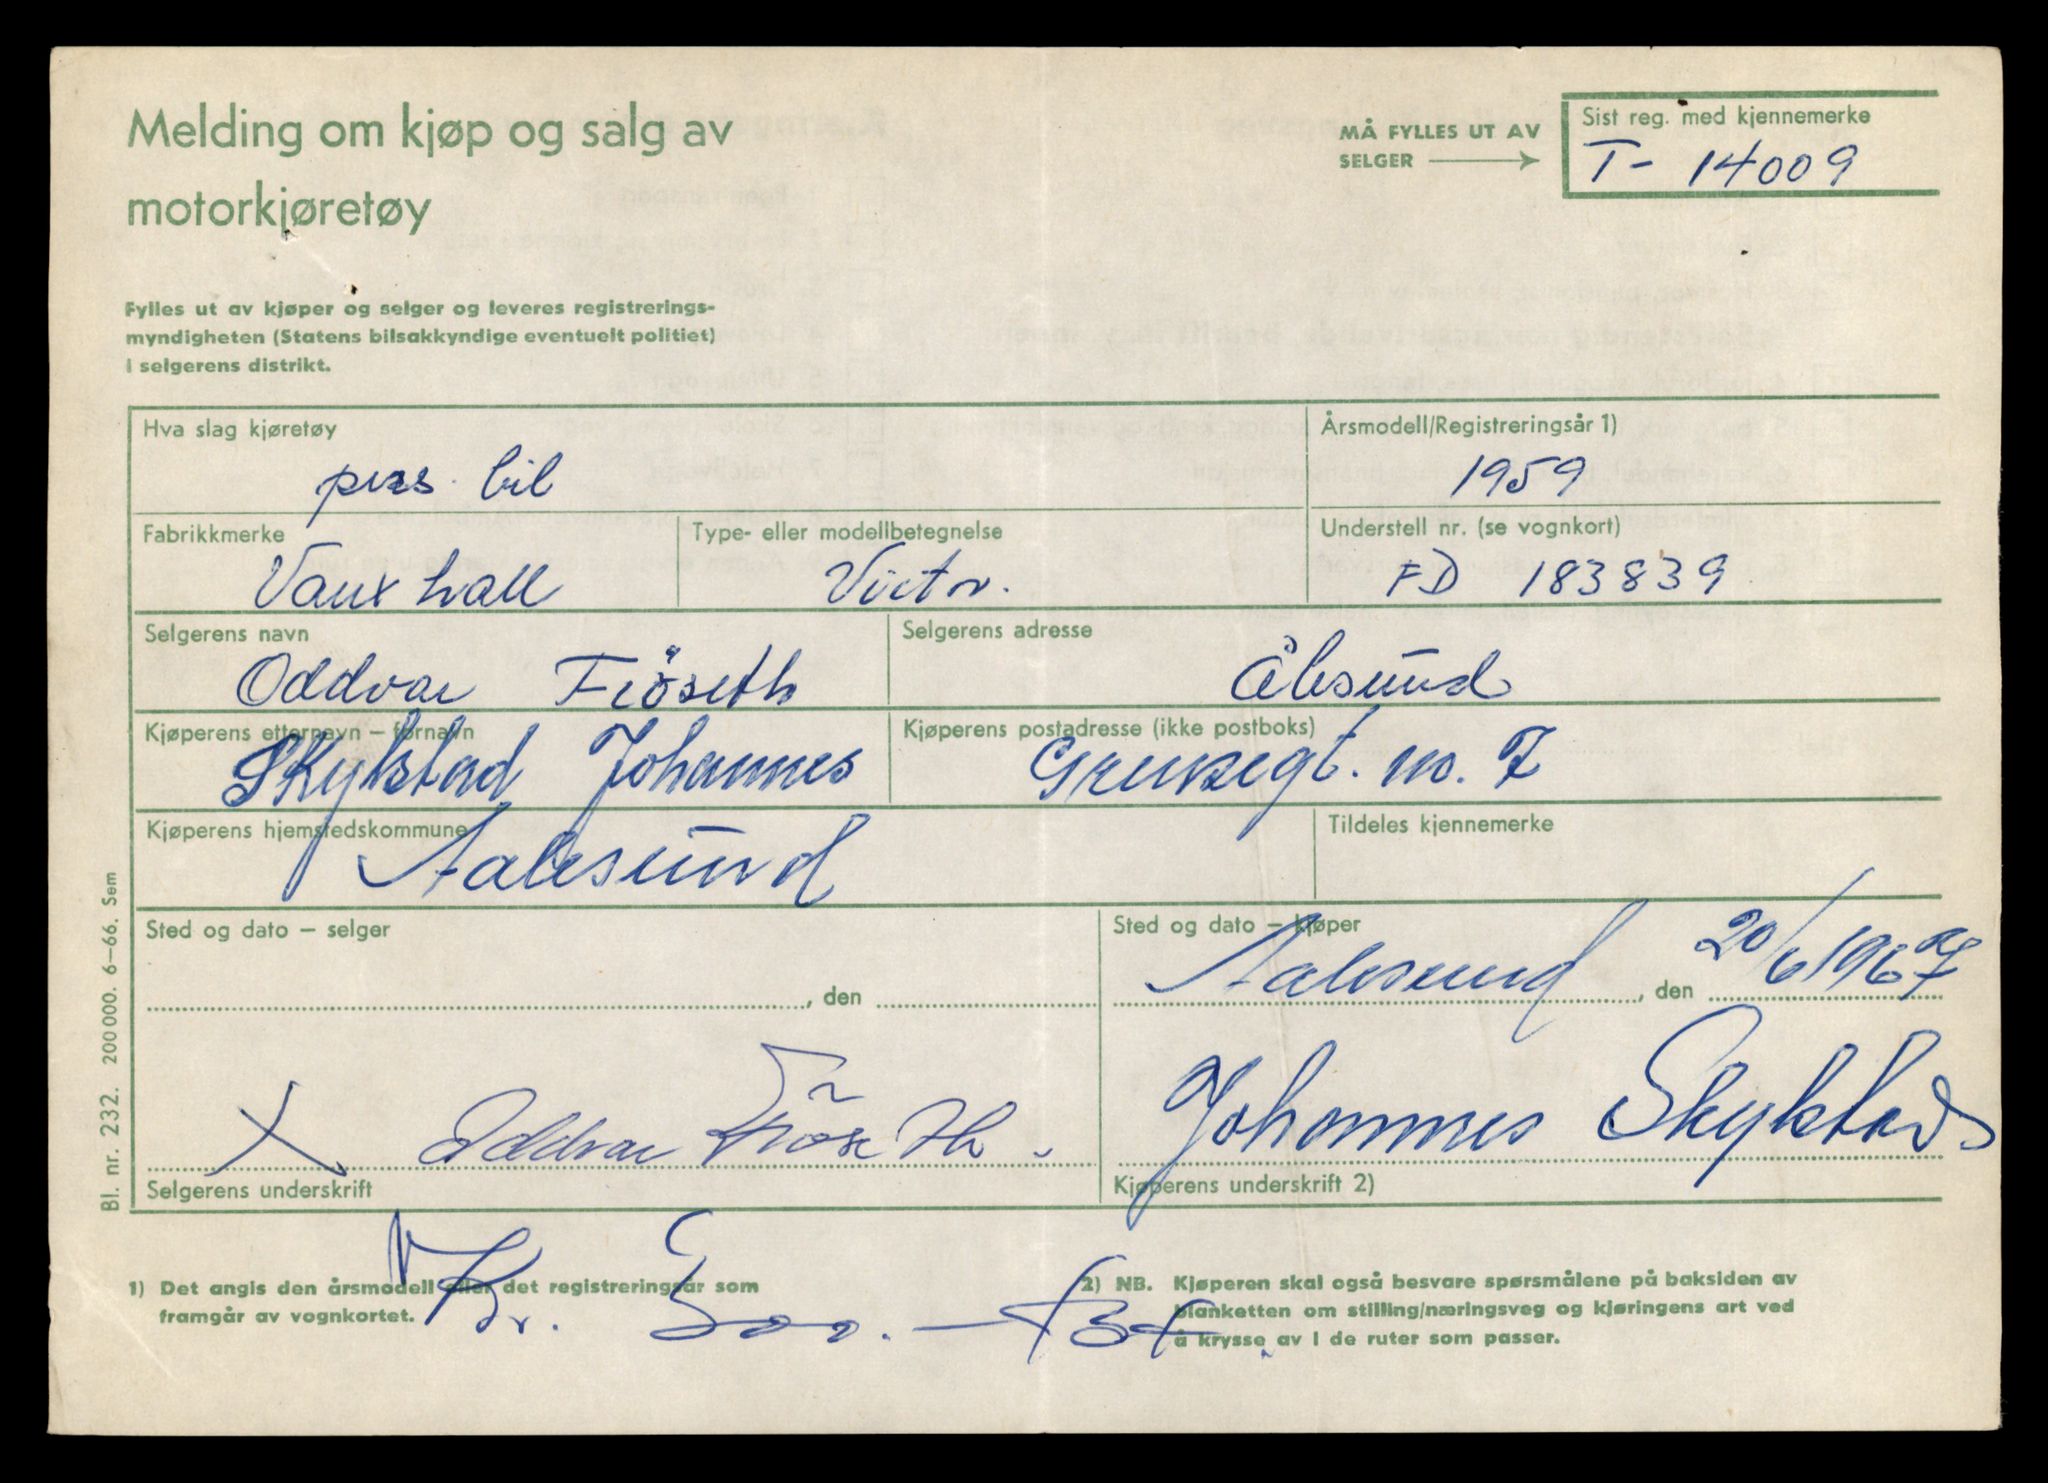 Melding om kjøp og salg av
motorkjøretøy
MÅ FYLLES UT AV
SELGER
Sist reg. med kjennemerke
T- 14009
Fylles ut av kjøper og selger og leveres registrerings-
myndigheten (Statens bilsakkyndige eventuelt politiet)
i selgerens distrikt.
Hva slag kjøretøy
pers. bil
Årsmodell/Registreringsår 1)
1959
Fabrikkmerke
Vauxhall
Type- eller modellbetegnelse
Victor.
Understell nr. (se vognkort)
FD 183839
Selgerens navn
Oddvar Fiöseth
Selgerens adresse
Ålesund
Kjøperens etternavn – fornavn
Skylstad Johannes
Kjøperens postadresse (ikke postboks)
no. 7
Kjøperens hjemstedskommune
Aalesund
Tildeles kjennemerke
Sted og dato – selger
, den
Sted og dato – kjøper
Aalesund, den 20/6 1967
Oddvar Fiöseth
Selgerens underskrift
Johannes Skylstad
Kjøperens underskrift 2)
1) Det angis den årsmodell eller det registreringsår som
framgår av vognkortet.
Kr.
2) NB. Kjøperen skal også besvare spørsmålene på baksiden av
blanketten om stilling/næringsveg og kjøringens art ved
å krysse av i de ruter som passer.
Bl. nr. 232. 200 000. 6–66. Sem